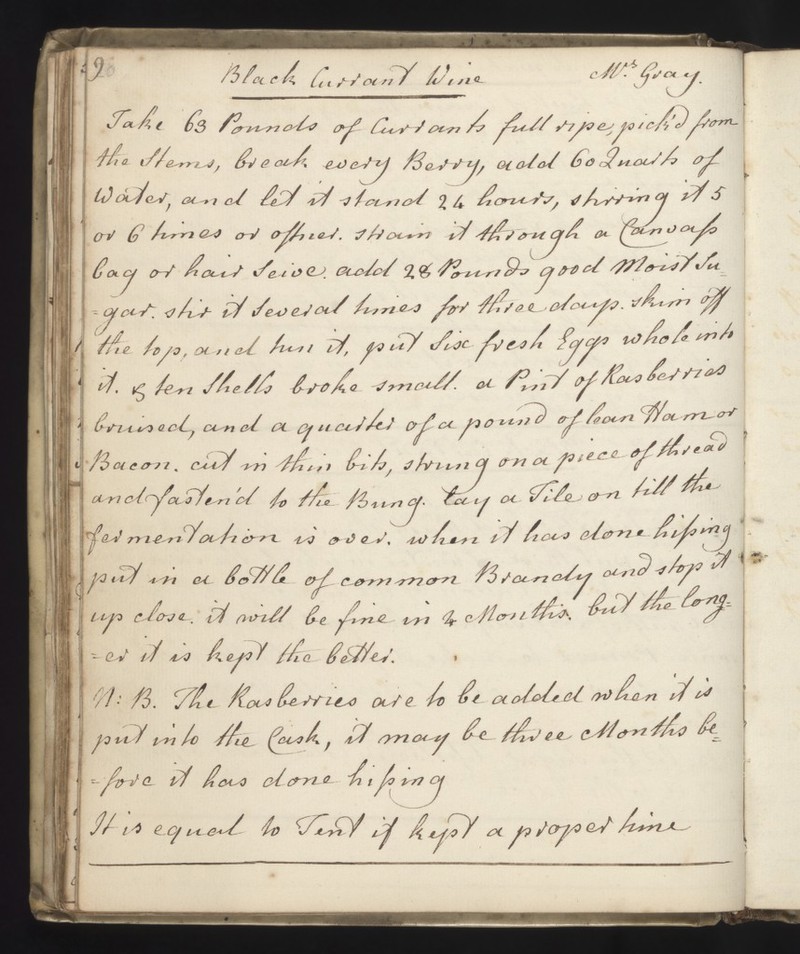 9
Black Currant Wine Mrs Gray.
Take 63 Pounds of Currants full ripe, pick'd from
the Stems, break every Berry, add 60 Quarts of
Water, and let it stand 24 hours, stirring it 5
or 6 times or oftner. strain it through a Canvaſs
bag or hair Seive. add 28 Pounds good Moist Su=
=gar. stir it Several times for three days. skim off
the top, and tun it, put Six fresh Eggs whole into
it. & ten Shells broke small. a Pint of Rasberries
bruised, and a quarter of a pound of lean Ham or
Bacon. cut in thin bits, strung on a piece of thread
and fasten'd to the Bung. lay a Tile on till the
fermentation is over. when it has done hiſsing
put in a bottle of common Brandy and stop it
up close. it will be fine in 4 Months. but the long=
=er it is kept the better.
N: B. The Rasberries are to be added when it is
put into the Cask, it may be three Months be=
=fore it has done hiſsing
It is equal to Tent if kept a proper time